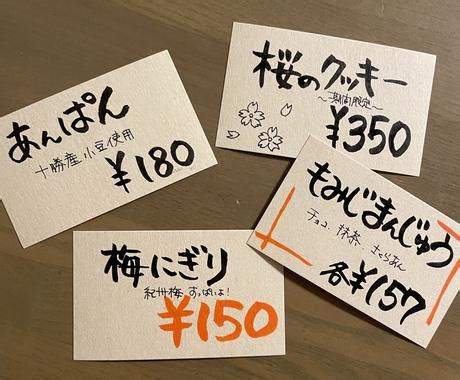 あんぱん
十勝産小豆使用
¥180
桜のクッキー
〜期間限定〜
¥350
梅にぎり
紀州梅 すっぱいよ!
¥150
もみじまんじゅう
チョコ、抹茶、さくらあん
各¥157